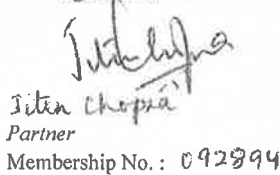 Jiten Chopra
Partner
Membership No.: 092894